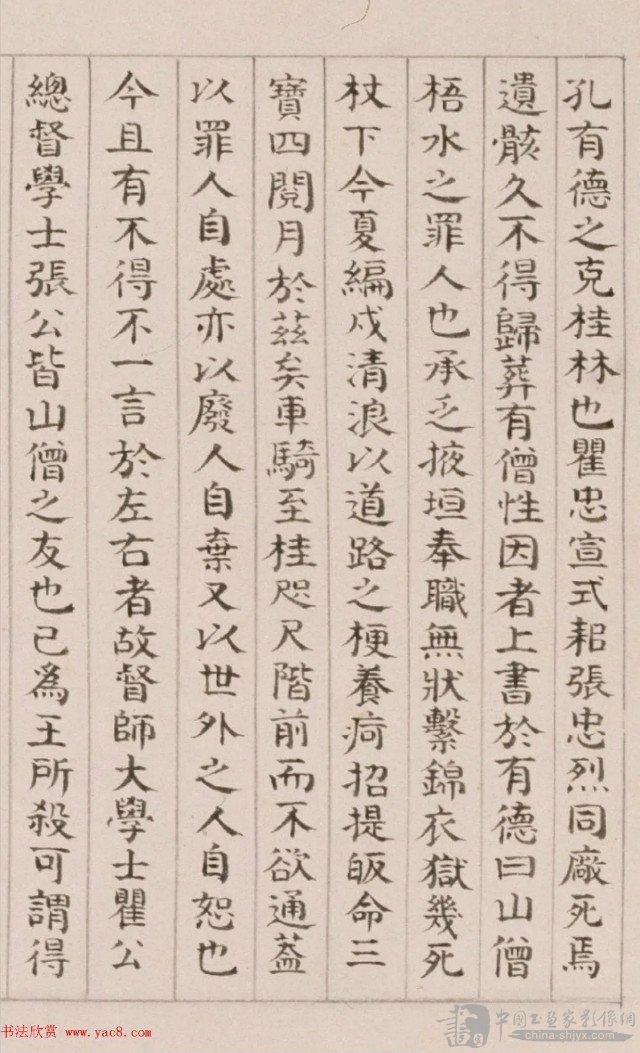 孔有德之克桂林也瞿忠宣式耜張忠烈同厰死焉
遺骸久不得歸葬有僧性因者上書於有德曰山僧
梧水之罪人也承乏掖垣奉職無狀繫錦衣獄幾死
杖下今夏編戍清浪以道路之梗養疴招提皈命三
寶四閱月於茲矣車騎至桂咫尺階前而不欲通蓋
以罪人自處亦以廢人自棄又以世外之人自恕也
今且有不得不一言於左右者故督師大學士瞿公
總督學士張公皆山僧之友也已為王所殺可謂得
书法欣赏 www.yac8.com
書 中国书画家影像網
china-shjyx.com